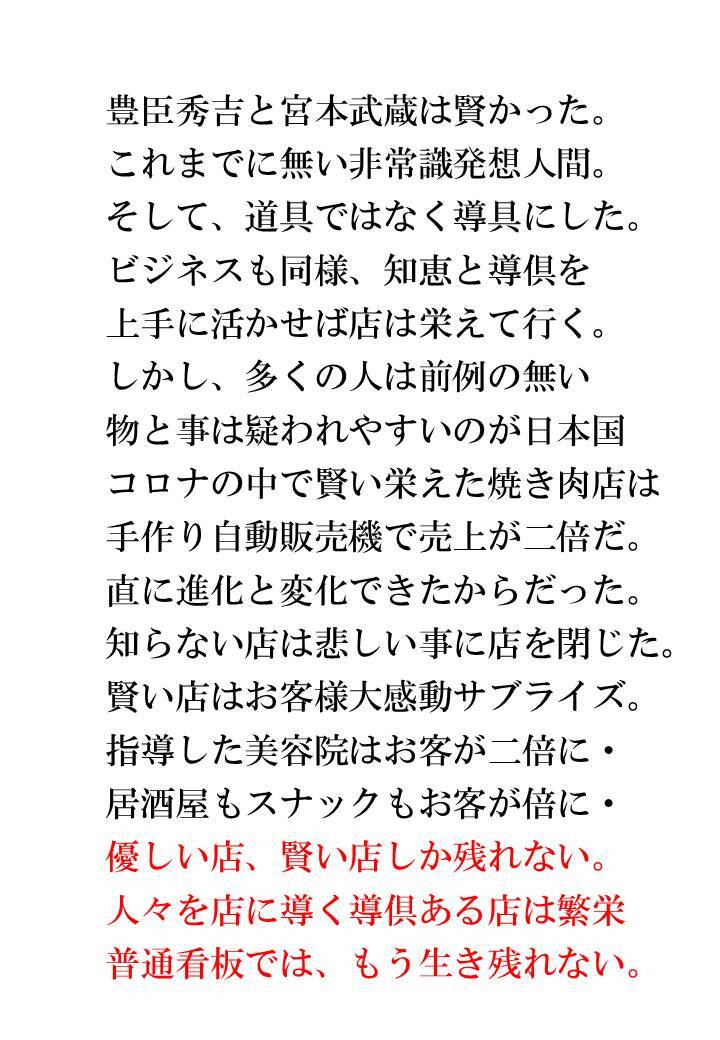 豊臣秀吉と宮本武蔵は賢かった。
これまでに無い非常識発想人間。
そして、道具ではなく導具にした。
ビジネスも同様、知恵と導倶を
上手に活かせば店は栄えて行く。
しかし、多くの人は前例の無い
物と事は疑われやすいのが日本国
コロナの中で賢い栄えた焼き肉店は
手作り自動販売機で売上が二倍だ。
直に進化と変化できたからだった。
知らない店は悲しい事に店を閉じた。
賢い店はお客様大感動サブライズ。
指導した美容院はお客が二倍に・
居酒屋もスナックもお客が倍に・
優しい店、賢い店しか残れない。
人々を店に導く導倶ある店は繁栄
普通看板では、もう生き残れない。